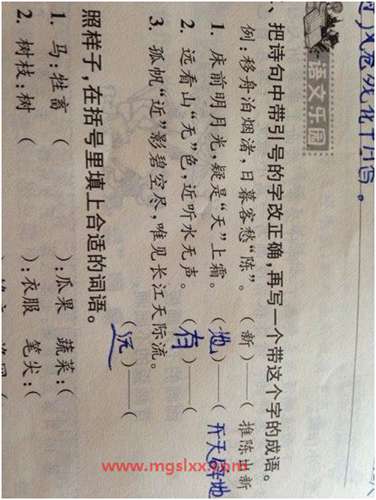 语文乐园
、把诗句中带引号的字改正确,再写一个带这个字的成语。
例:移舟泊烟渚,日暮客愁“陈”。(新)——(推陈出新
1. 床前明月光,疑是“天”上霜。(地)——(开天辟地
2. 远看山“无”色,近听水无声。(有)——(
3. 孤帆“近”影碧空尽,唯见长江天际流。(远)——(
照样子,在括号里填上合适的词语。
1. 马:牲畜 ( ):瓜果 蔬菜:(
2. 树枝:树 ( ):衣服 笔尖:(
www.mgslxx.com